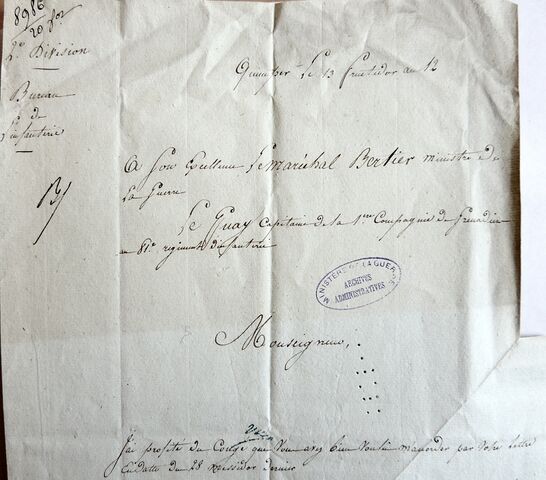 8986
2e Division
Bureau
de
l'infanterie
Quimper Le 13 fructidor an 12
A Son Excellence Le maréchal Bertier ministre de
La Guerre
Le Guay Capitaine de la 1ere Compagnie de Grenadier
au 81e regiment d'infanterie
MINISTÈRE DE LA GUERRE
ARCHIVES
ADMINISTRATIVES
Monseigneur,
J'ai profité du Congé que Vous avez bien Voulu m'accorder par Votre Lettre
En datte du 28 messidor dernier